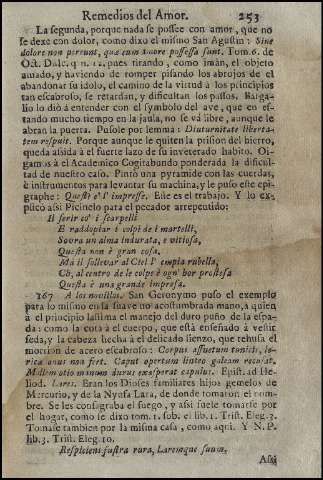 Remedios del Amor. 253
La segunda, porque nada se possee con amor, que no
se dexe con dolor, como dixo el mismo San Agustin: Sine
dolore non pereunt, quæ cum amore possessa sunt. Tom. 6. de
Oct. Dulc. q n. 12. pues tirando, como imán, el objeto
amado, y haviendo de romper pisando los abrojos de el
abandonar su idolo, el camino de la virtud à los principios
tan escabroso, se retardan, y dificultan los passos. Barga-
lio lo diò à entender con el symbolo del ave, que en es-
tando mucho tiempo en la jaula, no se và libre, aunque le
abran la puerta. Pusole por lemma: Diuturnitate liberta-
tem respuit. Porque aunque le quiten la prision del hierro,
queda asida à el fuerte lazo de su inveterado habito. Oi-
gamos à el Academico Cogitabundo ponderada la dificul-
tad de nuestro caso. Pintò una pyramide con las cuerdas,
è instrumentos para levantar su machina, y le puso este epi-
graphe: Questi è l' impresse. Este es el trabajo. Y lo ex-
plicò assi Picinelo para el pecador arrepentido:
Il ferir co' i scarpelli
E raddoppiar i colpi de i martelli,
Sovra un alma indurata, e vitiosa,
Questa non è gran cosa.
Má il sollevar al Ciel l' empia rubella,
Ch, al centro de le colpe è ogn' hor prostesa
Questa è una grande impresa.
367 A los novillos. San Geronymo puso el exemplo
para lo mismo en la suave no acostumbrada mano, a quien
à el principio lastima el manejo del duro puño de la espa-
da: como la cota à el cuerpo, que està enseñado à vestir
seda, y la cabeza hecha à el delicado lienzo, que rehusa el
morrion de acero escabroso: Corpus assuetum tunicis, lo-
rica onus non fert. Caput opertum linteo galeam recusat.
Mollem otio manum durus exasperat capulus. Epist. ad He-
liod. Lares. Eran los Dioses familiares hijos gemelos de
Mercurio, y de la Nynfa Lara, de donde tomaron el nom-
bre. Se les consagraba el fuego, y assi suele tomarse por
el hogar, como se dixo tom. 1. fob. el lib. 1. Trist. Eleg. 3.
Tomase tambien por la misma casa, como aqui. Y N. P.
lib. 3. Trist. Eleg. 10.
Respiciens frustra rura, Laremque suum,
Assi